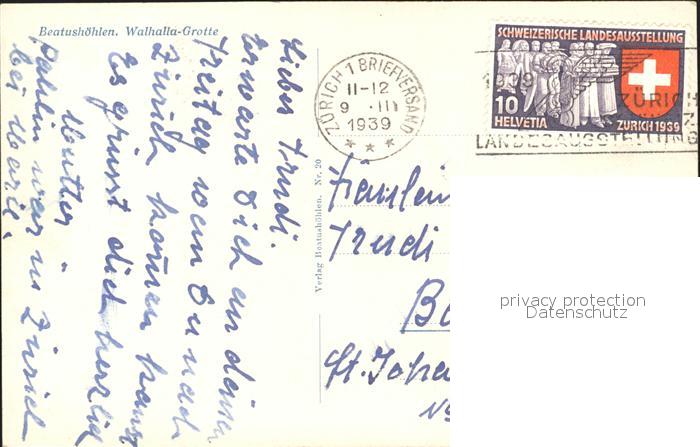 Beatushöhlen. Walhalla-Grotte
Liebes Trudi.
Erwarte Dich an deinem
Freitag wenn Du nach
Zürich kommen kannst
Es grüsst dich herzlich
Mutter
war in Zürich
bei
Verlag Beatushöhlen. Nr. 20
ZÜRICH 1 BRIEFVERSAND
11-12
9. II
1939
SCHWEIZERISCHE LANDESAUSSTELLUNG
10
HELVETIA
ZÜRICH 1939
1939
ZÜRICH
LANDESAUSSTELLUNG
Fräulein
Trudi
Ba
St. Joha
No
privacy protection
Datenschutz